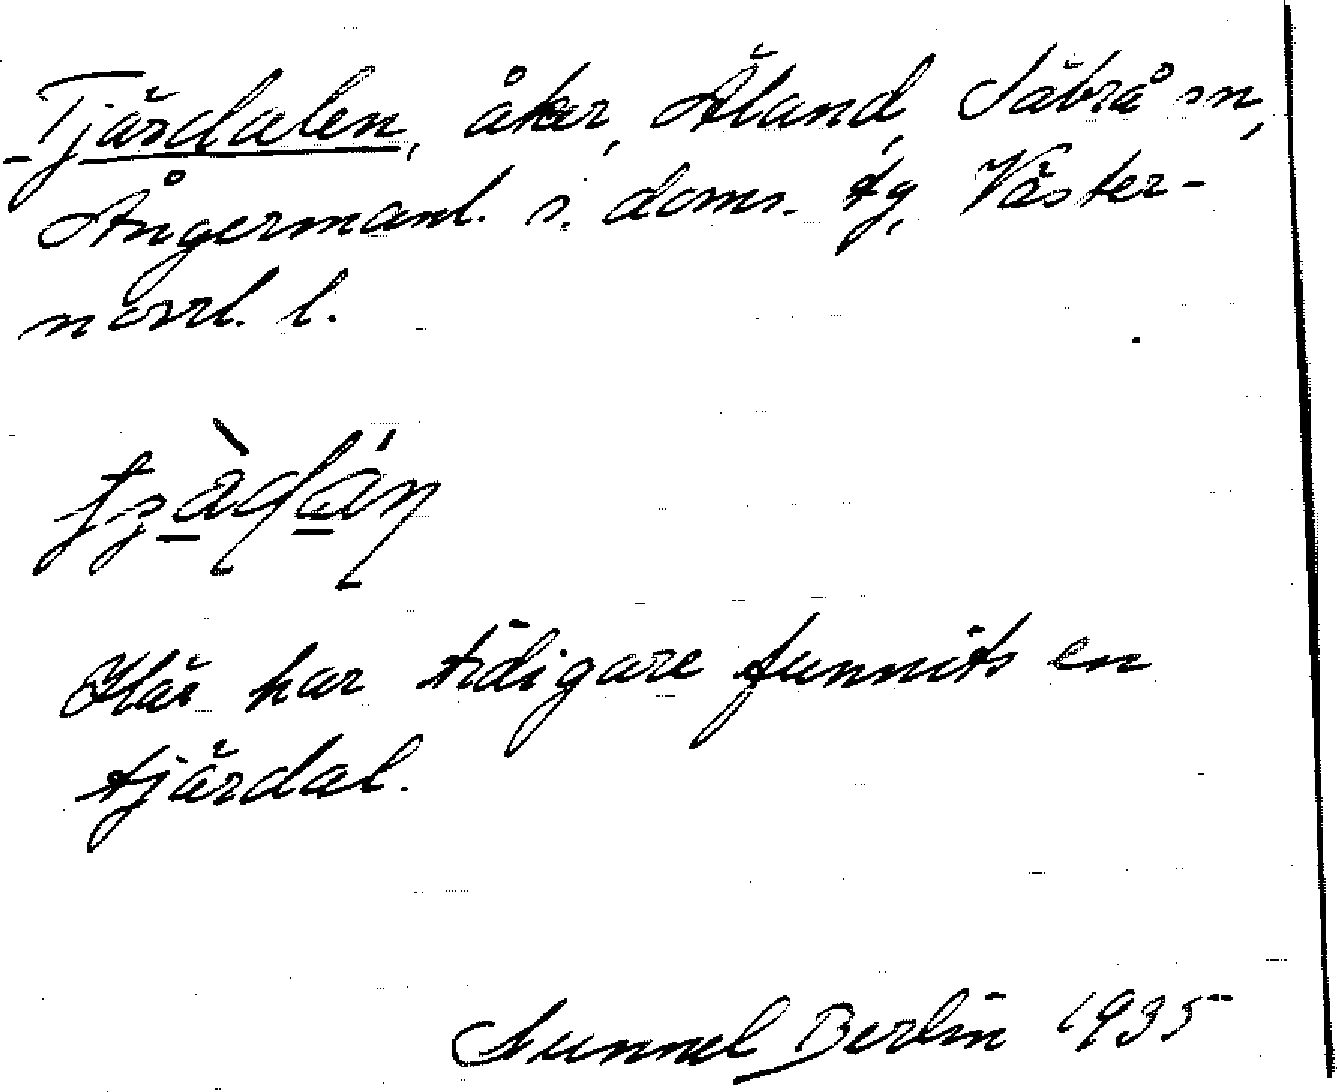 Tjärdalen, åker, Äland, Säbrå sn,
Ångermanl. s. doms. tg, Väster-
norrl. l.
Här har tidigare funnits en
tjärdal.
Gunnel Berlin 1935